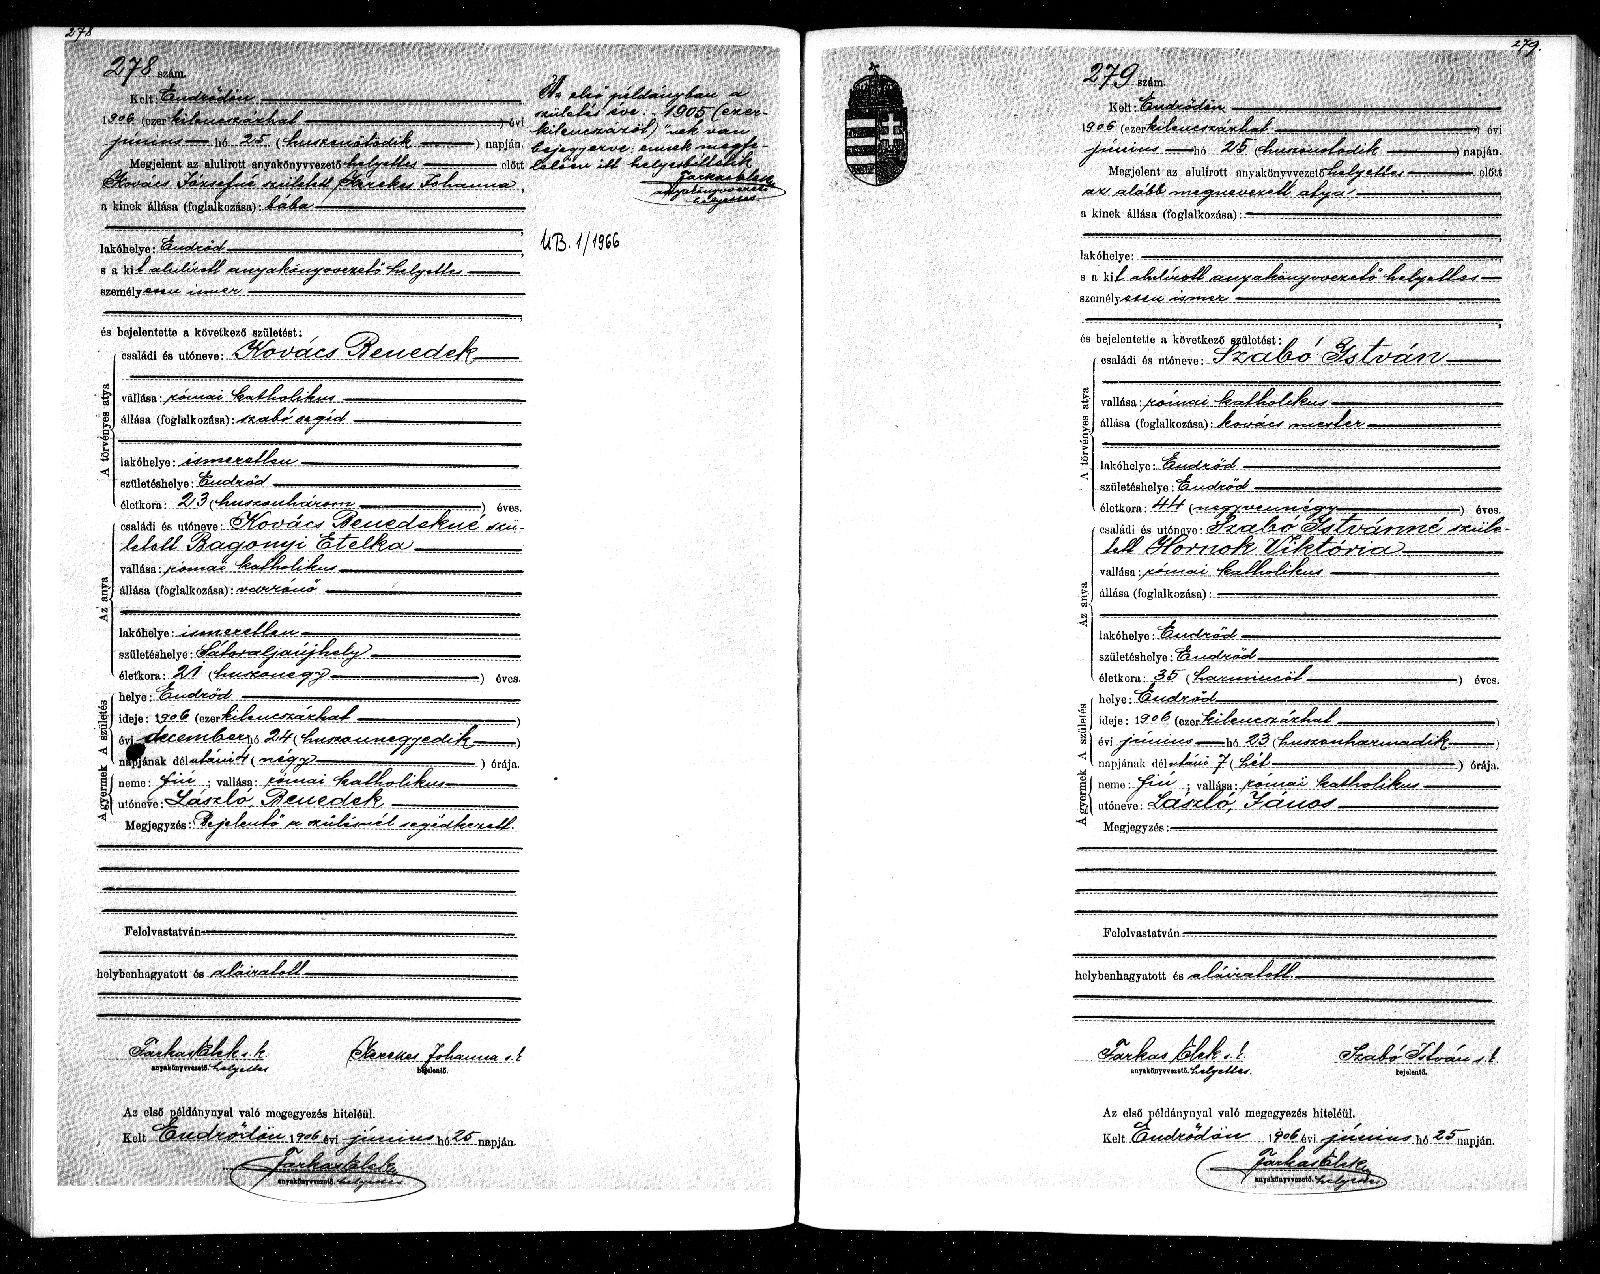 278
278 szám.
Kelt: Endrődön
1906 (ezer kilenczszázhat) évi
június hó 25 (huszonötödik) napján.
Megjelent az alulirott anyakönyvvezető helyettes előtt
Kovács Józsefné született Kerekes Johanna,
a kinek állása (foglalkozása): bába
lakóhelye: Endrőd
s a kit alulírott anyakönyvvezető helyettes
személyesen ismer
és bejelentette a következő születést:
A törvényes atya
családi és utóneve: Kovács Benedek
vallása: római katholikus
állása (foglalkozása): szabó segéd
lakóhelye: ismeretlen
születéshelye: Endrőd
életkora: 23 (huszonhárom) éves.
Az anya
családi és utóneve: Kovács Benedekné szü-
letett Bagonyi Etelka
vallása: római katholikus
állása (foglalkozása): varrónő
lakóhelye: ismeretlen
születéshelye: Sátoraljaújhely
életkora: 21 (huszonegy) éves.
A gyermek A születés
helye: Endrőd
ideje: 1906 (ezer kilenczszázhat)
évi december hó 24 (huszonnegyedik)
napjának délutáni 4 (négy) órája.
neme: fiú; vallása: római katholikus
utóneve: László, Benedek
Megjegyzés: Bejelentő a szülésnél segédkezett.
Felolvastatván
helybenhagyatott és aláiratott
Farkas Elek s. k. Kerekes Johanna s. k.
anyakönyvvezető helyettes bejelentő.
Az első példánynyal való megegyezés hiteléül.
Kelt Endrődön 1906 évi június hó 25 napján.
Farkas Elek
anyakönyvvezető helyettes
Az első példányban a
születés éve: "1905 (ezer-
kilenczszázöt)"nek van
bejegyezve; ennek megfe-
lelően itt helyesbíttetik
Farkas Elek
anyakönyvvezető
helyettes.
UB. 1/1966
279.
279 szám.
Kelt: Endrődön
1906 (ezer kilenczszázhat) évi
június hó 25 (huszonötödik) napján.
Megjelent az alulirott anyakönyvvezető helyettes előtt
az alább megnevezett atya
a kinek állása (foglalkozása):
lakóhelye:
s a kit alulírott anyakönyvvezető helyettes
személyesen ismer
és bejelentette a következő születést:
A törvényes atya
családi és utóneve: Szabó István
vallása: római katholikus
állása (foglalkozása): kovács mester
lakóhelye: Endrőd
születéshelye: Endrőd
életkora: 44 (negyvennégy) éves.
Az anya
családi és utóneve: Szabó Istvánné szüle-
tett Hornok Viktória
vallása: római katholikus
állása (foglalkozása):
lakóhelye: Endrőd
születéshelye: Endrőd
életkora: 35 (harminczöt) éves.
A gyermek A születés
helye: Endrőd
ideje: 1906 (ezer kilenczszázhat)
évi június hó 23 (huszonharmadik)
napjának délutáni 7 (hét) órája.
neme: fiú; vallása: római katholikus
utóneve: László, János
Megjegyzés:
Felolvastatván
helybenhagyatott és aláiratott
Farkas Elek s. k. Szabó István s. k.
anyakönyvvezető helyettes. bejelentő.
Az első példánynyal való megegyezés hiteléül.
Kelt Endrődön 1906 évi június hó 25 napján.
Farkas Elek
anyakönyvvezető helyettes